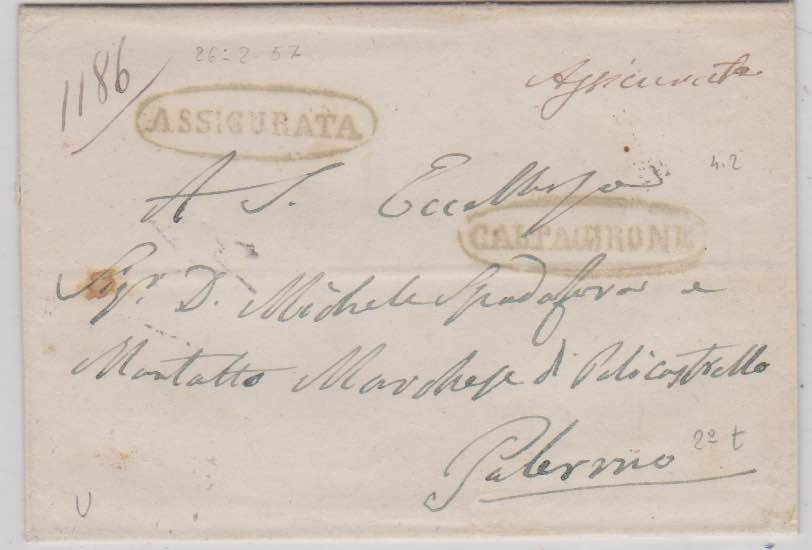 1186
26-2-57
Assicurata
ASSICURATA
4.2
A S. Eccellenza
CALTAGIRONE
Sigr. D. Michele Spadafora e
Montalto Marchese di Policastrello
Palermo
2ª t
V